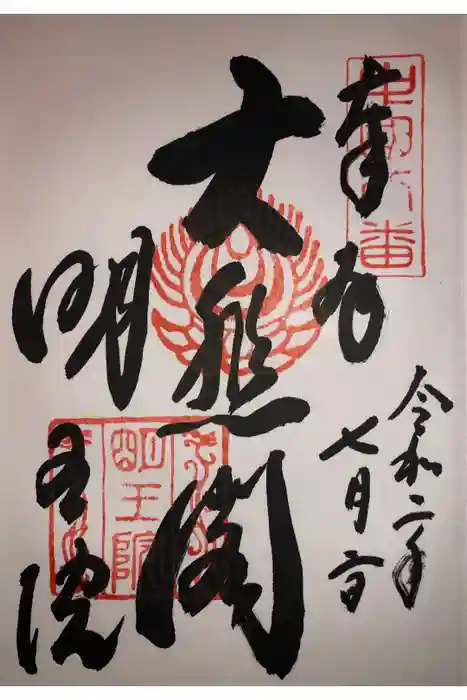 中国八番
奉拝
令和二年
七月
大悲閣
明王院
明王院